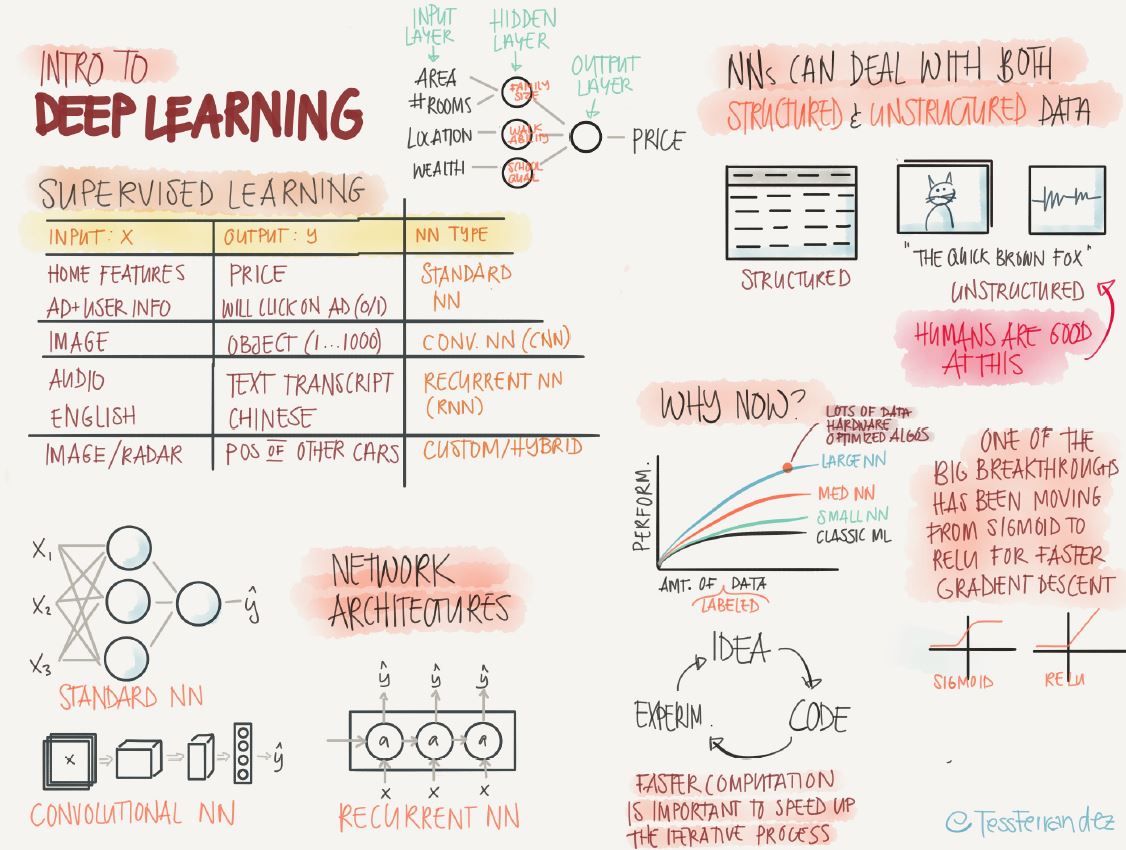 INTRO TO
DEEP LEARNING
INPUT
LAYER
HIDDEN
LAYER
OUTPUT
LAYER
AREA
#ROOMS
LOCATION
WEALTH
FAMILY
SIZE
WALK
ABILITY
SCHOOL
QUAL
PRICE
SUPERVISED LEARNING
INPUT: X OUTPUT: y NN TYPE
HOME FEATURES PRICE STANDARD
AD+USER INFO WILL CLICK ON AD (0/1) NN
IMAGE OBJECT (1...1000) CONV. NN (CNN)
AUDIO TEXT TRANSCRIPT RECURRENT NN
ENGLISH CHINESE (RNN)
IMAGE/RADAR POS OF OTHER CARS CUSTOM/HYBRID
NNs CAN DEAL WITH BOTH
STRUCTURED & UNSTRUCTURED DATA
STRUCTURED
"THE QUICK BROWN FOX"
UNSTRUCTURED
HUMANS ARE GOOD
AT THIS
WHY NOW?
LOTS OF DATA
HARDWARE
OPTIMIZED ALGOS
LARGE NN
MED NN
SMALL NN
CLASSIC ML
PERFORM.
AMT. OF DATA
LABELED
ONE OF THE
BIG BREAKTHROUGHS
HAS BEEN MOVING
FROM SIGMOID TO
RELU FOR FASTER
GRADIENT DESCENT
SIGMOID
RELU
NETWORK
ARCHITECTURES
X1
X2
X3
ŷ
STANDARD NN
x
ŷ
CONVOLUTIONAL NN
ŷ ŷ ŷ
a a a
x x x
RECURRENT NN
IDEA
EXPERIM.
CODE
FASTER COMPUTATION
IS IMPORTANT TO SPEED UP
THE ITERATIVE PROCESS
@TessFerrandez